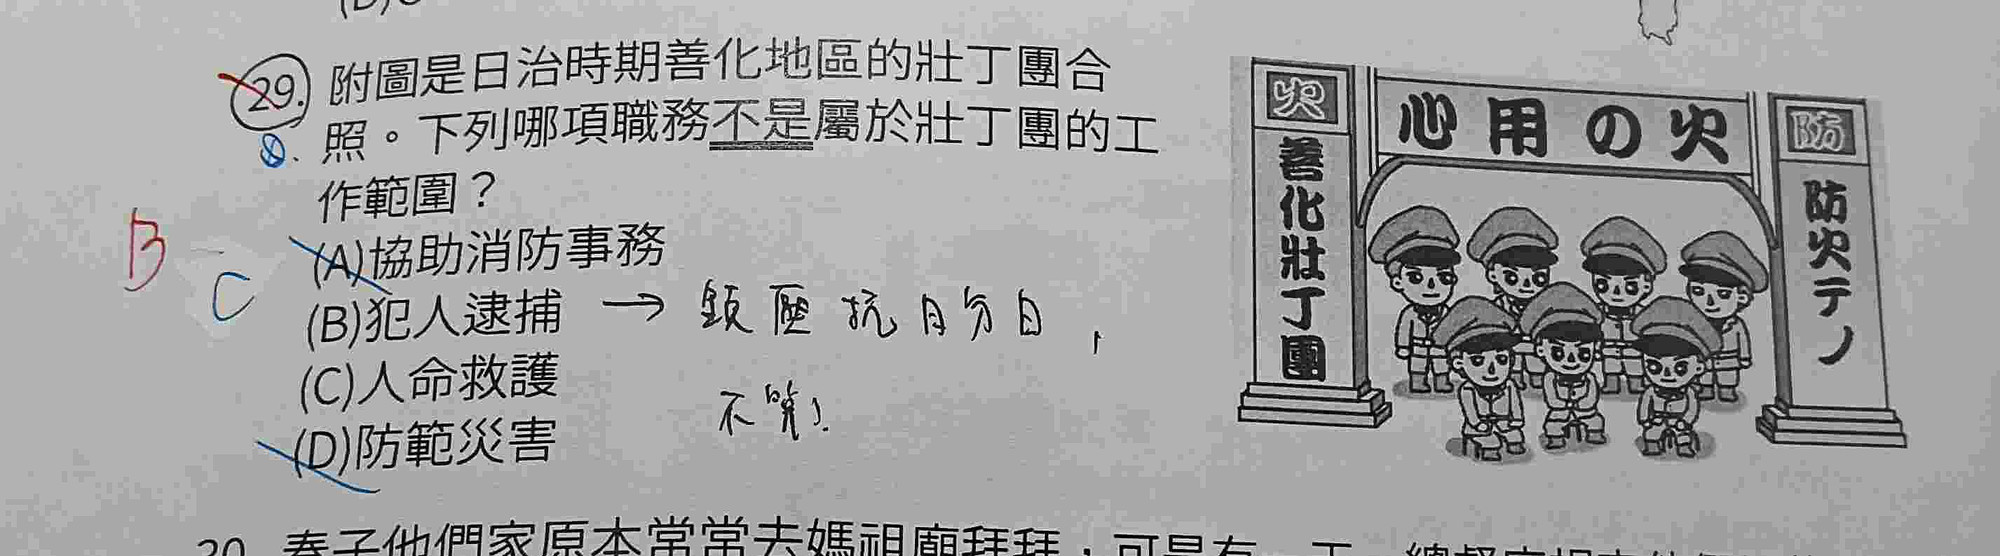 29. 附圖是日治時期善化地區的壯丁團合
照。下列哪項職務不是屬於壯丁團的工
作範圍？
(A)協助消防事務
(B)犯人逮捕 → 鎮壓抗日分自，
(C)人命救護
不算！
(D)防範災害
B
C
火
善化壯丁團
心用の火
防
防火テノ